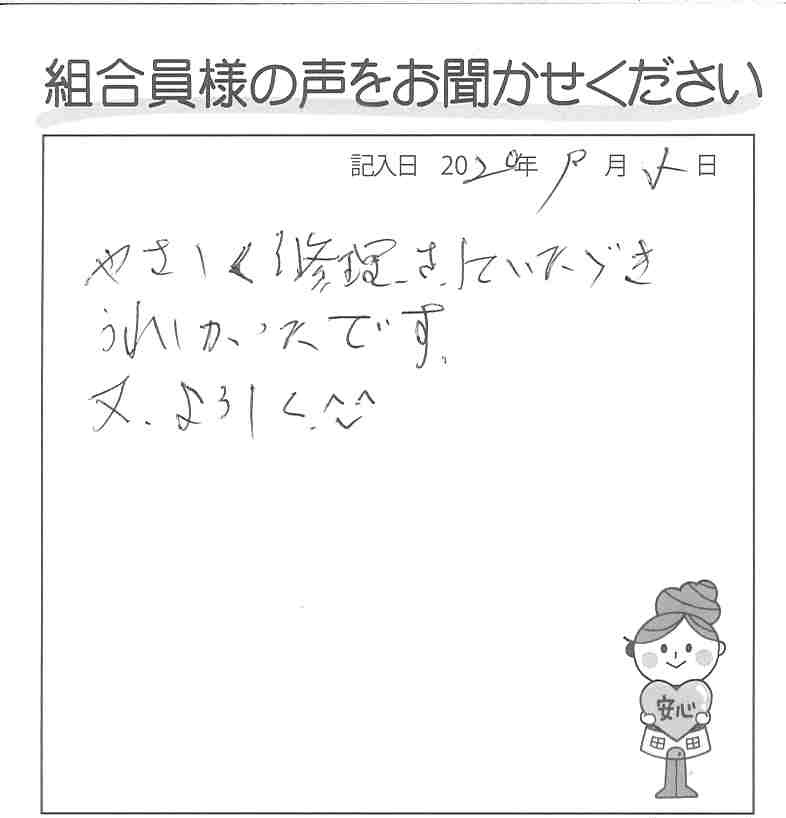 組合員様の声をお聞かせください
記入日 2020年 月 日
やさしく修理していただき
うれしかったです。
又、よろしく。^^
安心